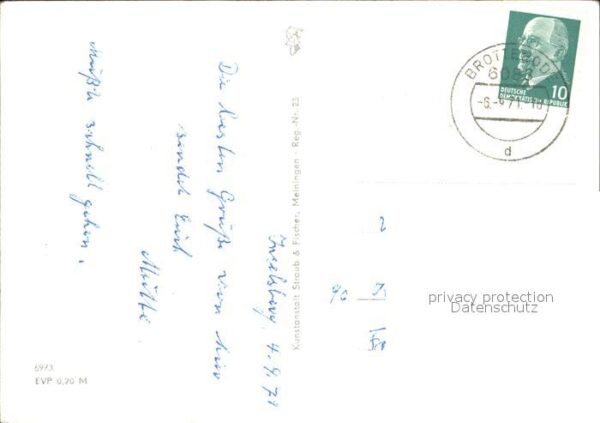 Inselsberg, 4.9.71
Die besten Grüße von hier
sendet Euch
Mutti.
Mußte schnell gehen.
Kunstanstalt Straub & Fischer, Meiningen · Reg.-Nr. 23
6973
EVP 0,20 M
BROTTEROD
6086
-6.-9.71.-16
d
10
DEUTSCHE
DEMOKRATISCHE REPUBLIK
privacy protection
Datenschutz